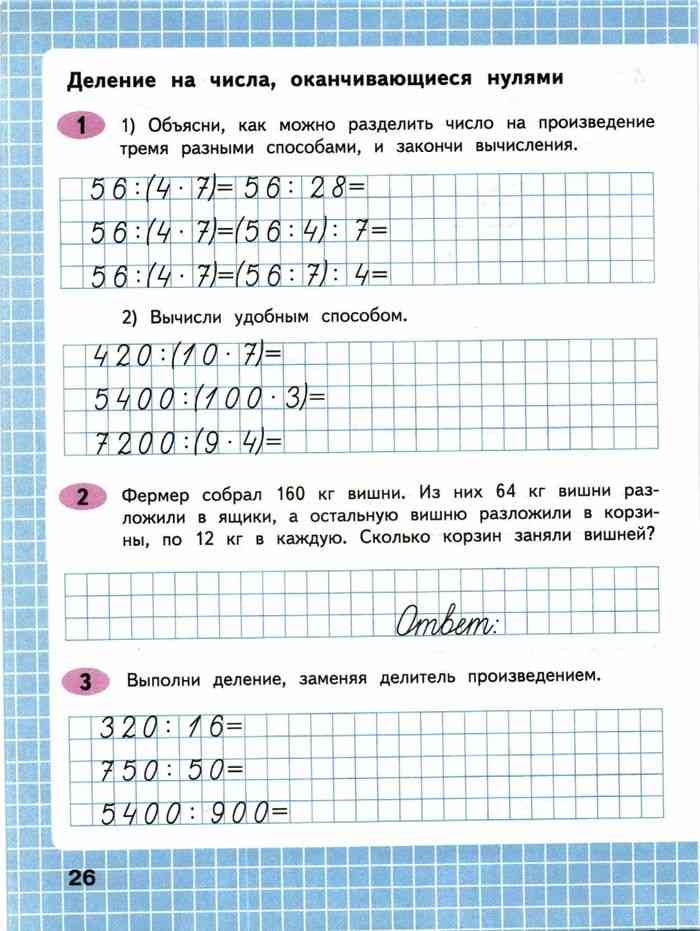 Деление на числа, оканчивающиеся нулями
1
1) Объясни, как можно разделить число на произведение
тремя разными способами, и закончи вычисления.
56:(4·7)=56:28=
56:(4·7)=(56:4):7=
56:(4·7)=(56:7):4=
2) Вычисли удобным способом.
420:(10·7)=
5400:(100·3)=
7200:(9·4)=
2
Фермер собрал 160 кг вишни. Из них 64 кг вишни раз-
ложили в ящики, а остальную вишню разложили в корзи-
ны, по 12 кг в каждую. Сколько корзин заняли вишней?
Ответ:
3
Выполни деление, заменяя делитель произведением.
320:16=
750:50=
5400:900=
26